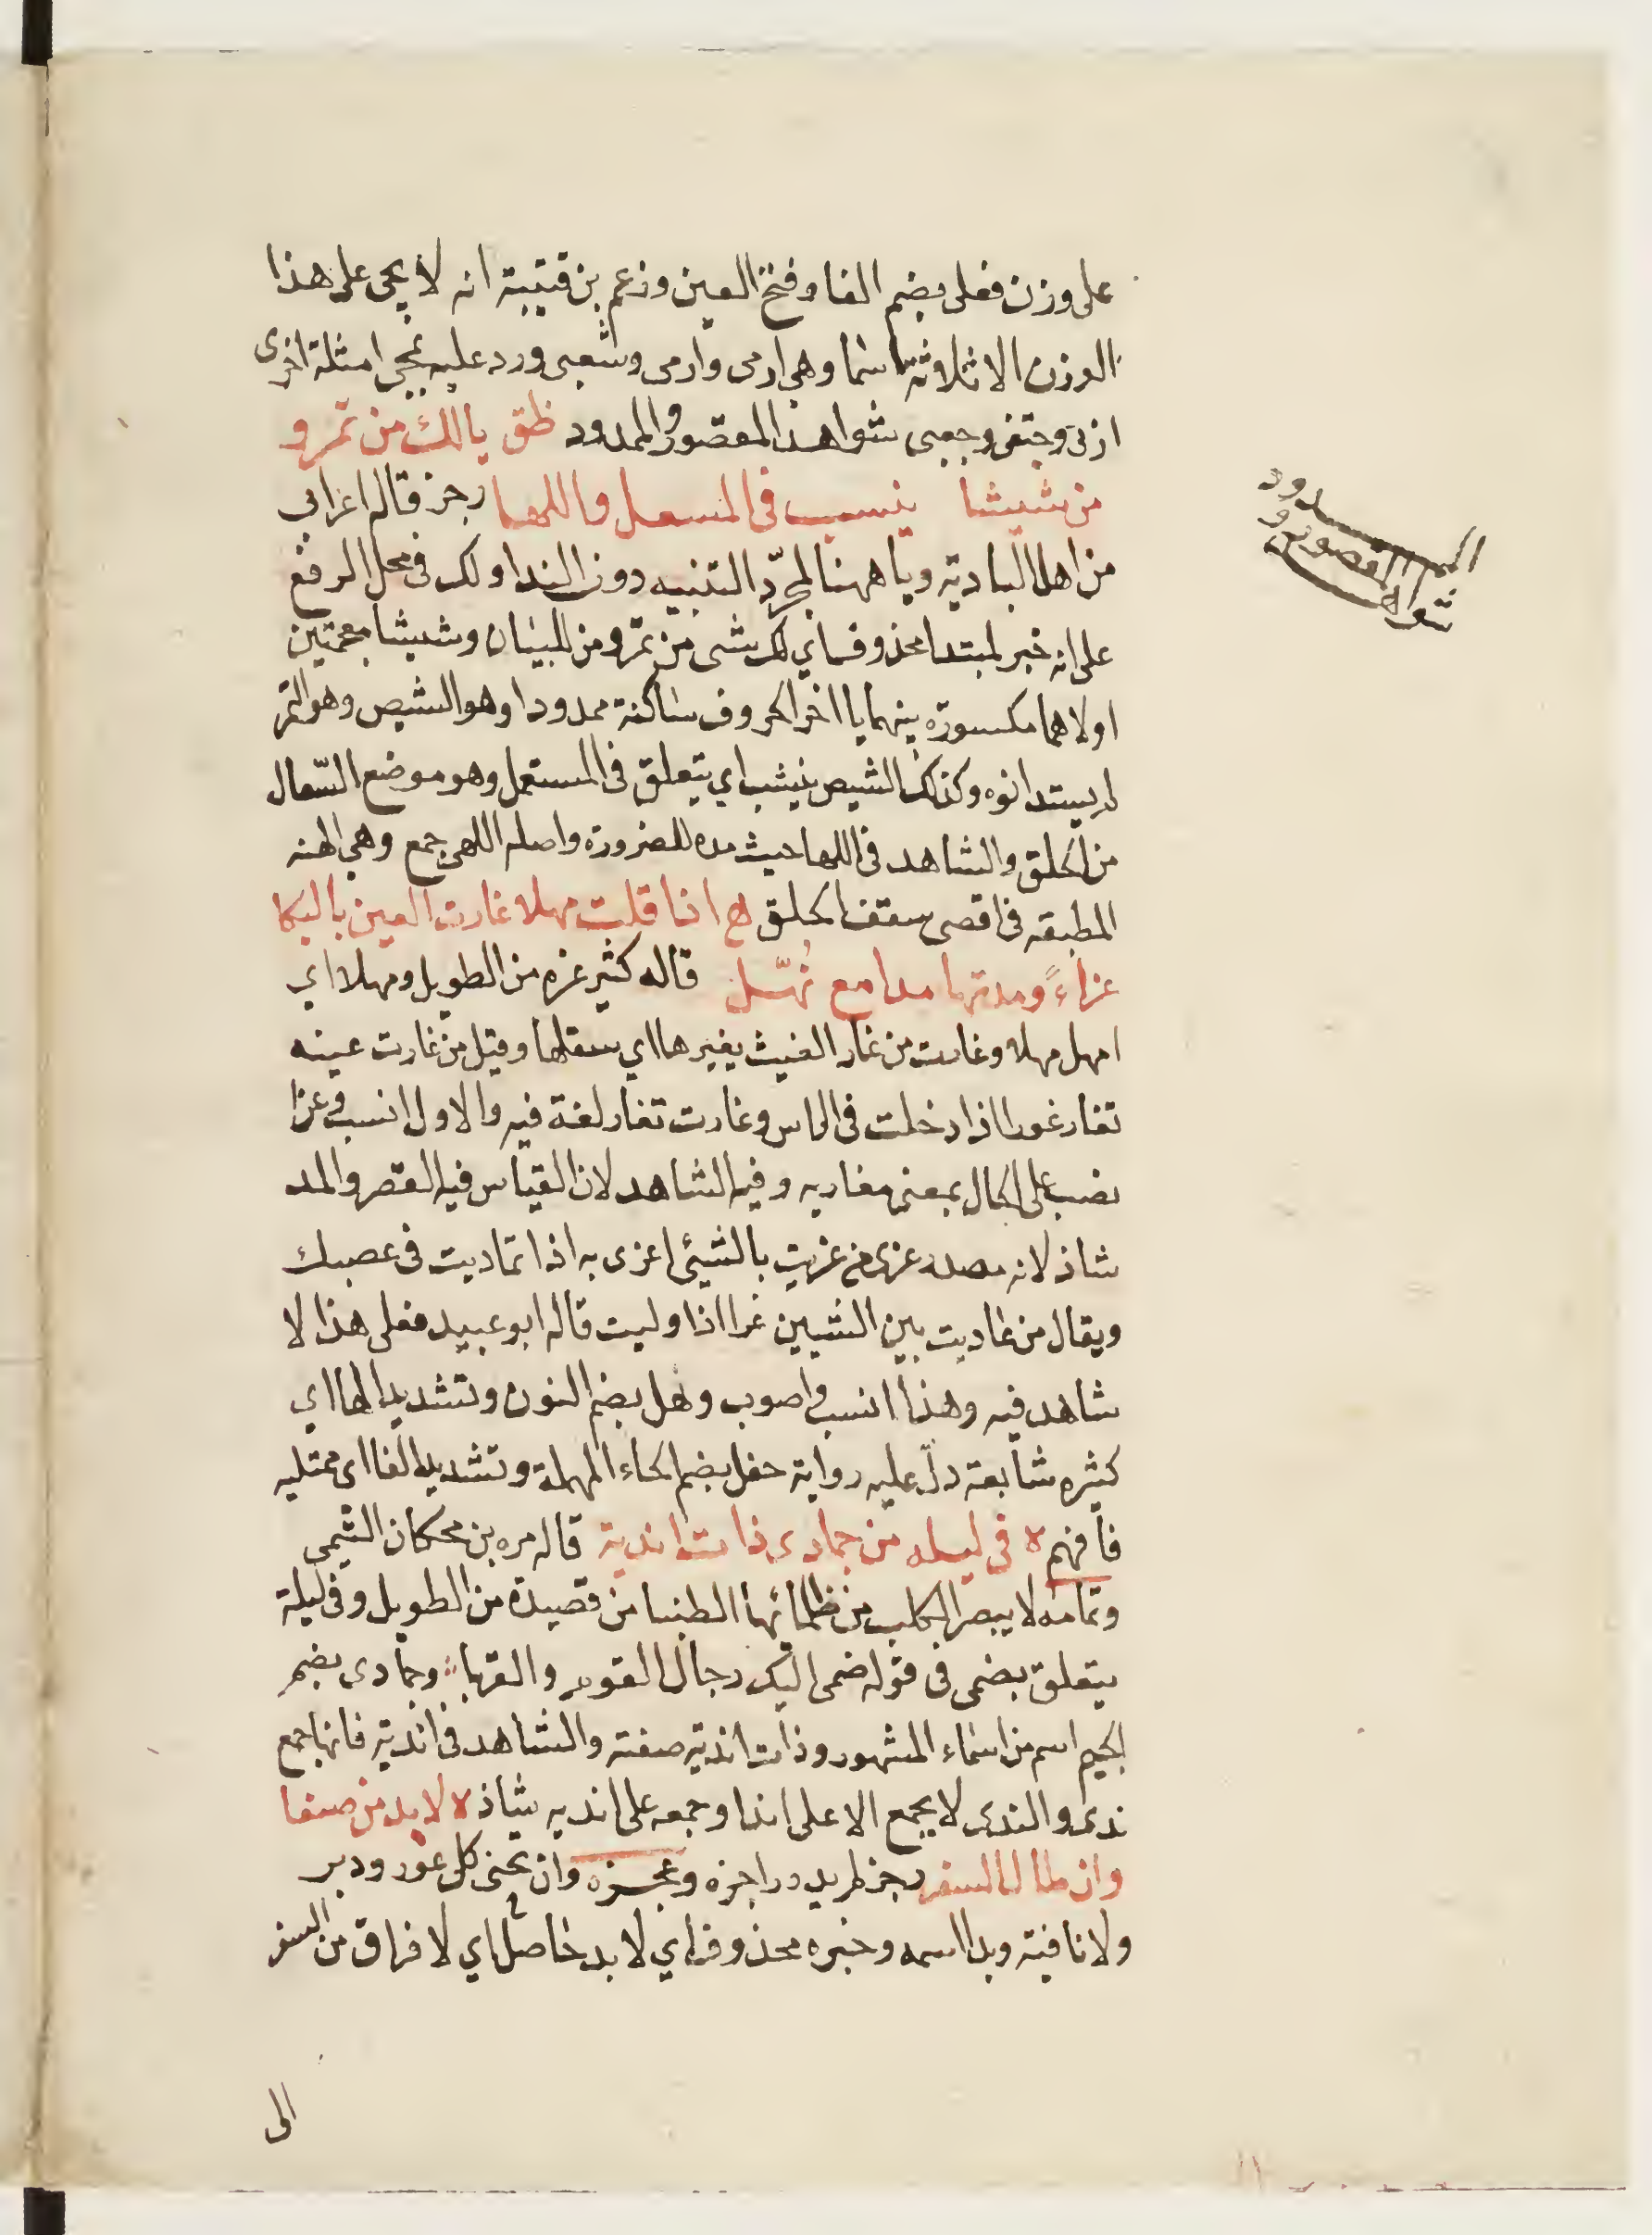 على وزن فعلى بضم الفا وفتح العين وزعم بن قتيبة انه لا يجى على هذا
الوزن الا ثلاثة اسما وهى ادمى وارمى وشعبى ورد عليه بمجى امثلة اخرى
ارنى وجنفى وجعبى شواهد المقصور والممدود ظق يا لك من تمر و
من شيشا ينشب فى المسعل واللها رجز قاله اعرابى
من اهل البادية ويا ههنا لمجرّد التنبيه دون الندا ولك فى محل الرفع
على انه خبر لمبتدا محذوف اي لك شى من تمر ومن للبيان وشيشا بمعجمتين
اولاهما مكسورة بينهما يا اخر الحروف ساكنة ممدودا وهو الشيص وهو التمر
لم يشتد نوه وكذلك الشيص ينشب اي يتعلق فى المسعل وهو موضع السّعال
من الحلق والشاهد فى اللها حيث مده للضرورة واصله اللهى جمع وهى الهنه
المطبقه فى اقصى سقف الحلق هح اذا قلت مهلا غارت العين بالبكا
غراءً ومدتها مدامع نُهّل قاله كثير عزه من الطويل ومهلا اي
امهل مهلا وغارت من غار الغيث يغيرها اي سقاها وقيل من غارت عينه
تغار غورا اذا دخلت فى الراس وغارت تغار لغة فيه والاول انسب وغرا
نصب على الحال بمعنى مغاريه وفيه الشاهد لان القياس فيه القصر والمد
شاذ لانه مصدر غرى من غريت بالشيئ اغرى به اذا تماديت فى غضبك
ويقال من غاديت بين الشيين غرا اذا وليت قاله ابو عبيد فعلى هذا لا
شاهد فيه وهذا انسب واصوب ونهل بضم النون وتشديد الها اي
كثيره شابعة دلّ عليه رواية حفل بضم الحاء المهملة وتشديد الفا اى ممتليه
فافهم ه فى ليله من جمادى ذات اندية قاله مره بن محكان التيمى
وتمامه لا يبصر الكلب من ظلمائها الطنبا من قصيدة من الطويل وفى ليلة
يتعلق بضمى فى قوله ضمى اليك رجال القوم والقربا وجمادى بضم
الجيم اسم من اسماء المشهور وذات اندية صفته والشاهد فى اندية فانها جمع
ندى والندى لا يجمع الا على اندا وجمعه على انديه شاذ ه لا بد من صنعا
وان طال السفر رجز لم يدر راجزه وعجزه وان تحنى كل عود ودبر
ولا نافية وبد اسمه وخبره محذوف اي لا بد حاصل اي لا فراق من السفر
الى
شواهد
المقصور و
الممدود